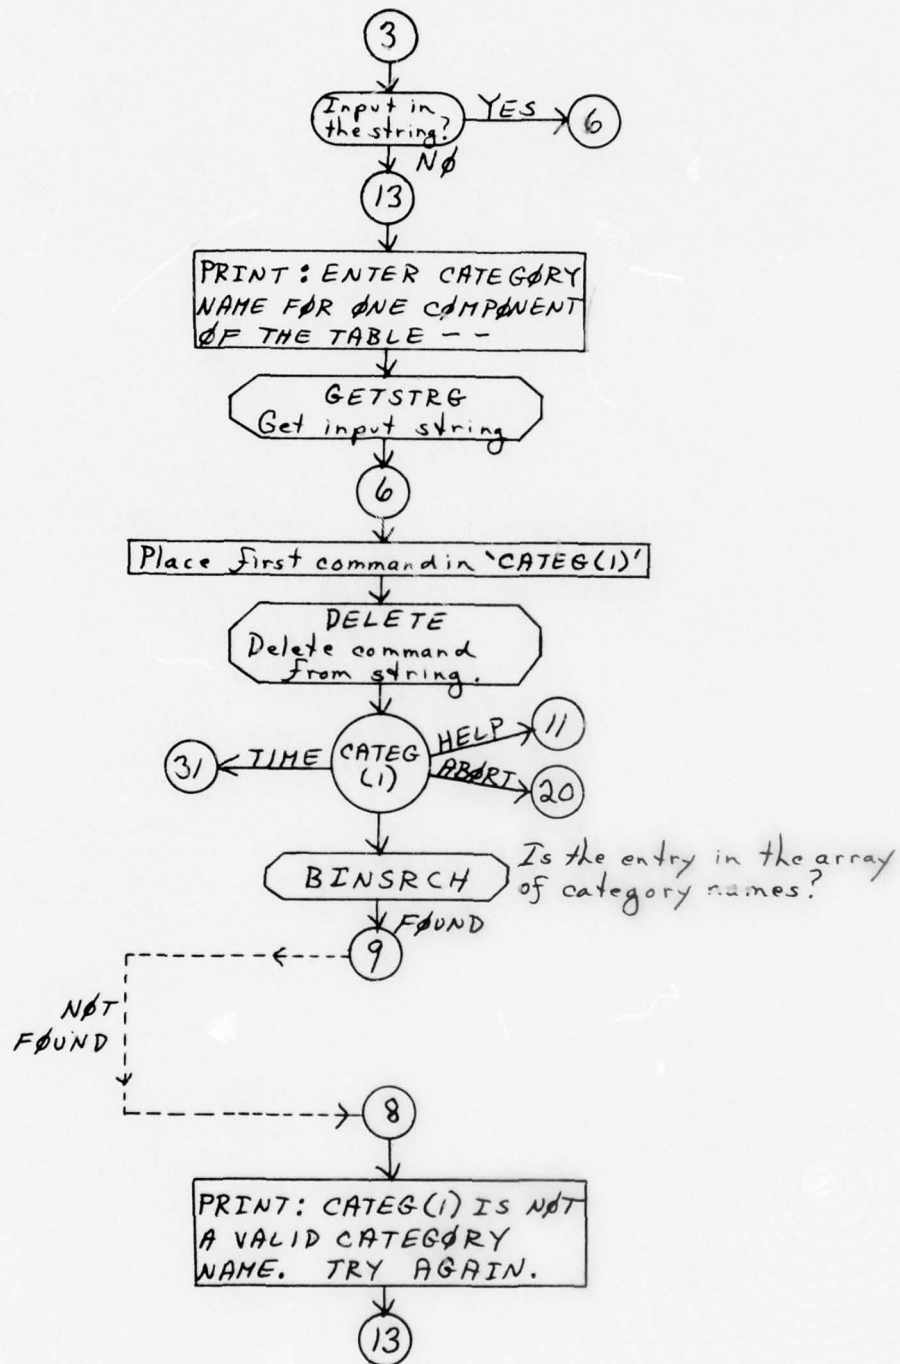 3
Input in
the string?
YES
6
NØ
13
PRINT: ENTER CATEGØRY
NAME FØR ØNE CØMPØNENT
ØF THE TABLE --
GETSTRG
Get input string
6
Place first command in 'CATEG(1)'
DELETE
Delete command
from string.
31
TIME
CATEG
(1)
HELP
11
ABØRT
20
BINSRCH
Is the entry in the array
of category names?
FØUND
9
NØT
FØUND
8
PRINT: CATEG(1) IS NØT
A VALID CATEGØRY
NAME. TRY AGAIN.
13